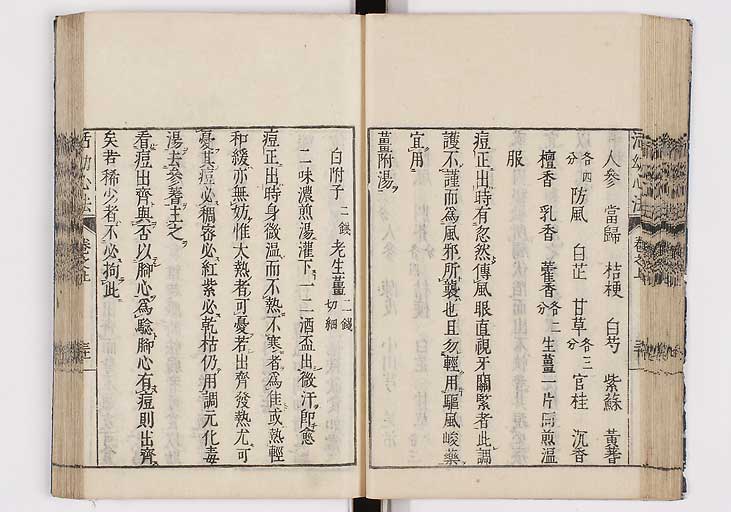 人參 當歸 桔梗 白芍 紫蘇 黃蓍
各四分 防風 白芷 甘草各三分 官桂 沉香
檀香 乳香 藿香各二分 生薑一片同煎溫
服
痘正出時有忽然傳風眼直視牙關緊者此調
護不謹而為風邪所襲也且勿輕用驅風峻藥
宜用
薑附湯
白附子二錢 老生薑二錢切細
二味濃煎湯灌下一二酒盃出微汗即愈
痘正出時身微溫而不熱不寒者為佳或熱輕
和緩亦無妨惟大熱者可憂若出齊發熱尤可
憂其痘必稠密必紅紫必乾枯仍用調元化毒
湯去參蓍主之
看痘出齊與否以腳心為驗腳心有痘則出齊
矣若稀少者不必拘此
活幼心法
卷之上